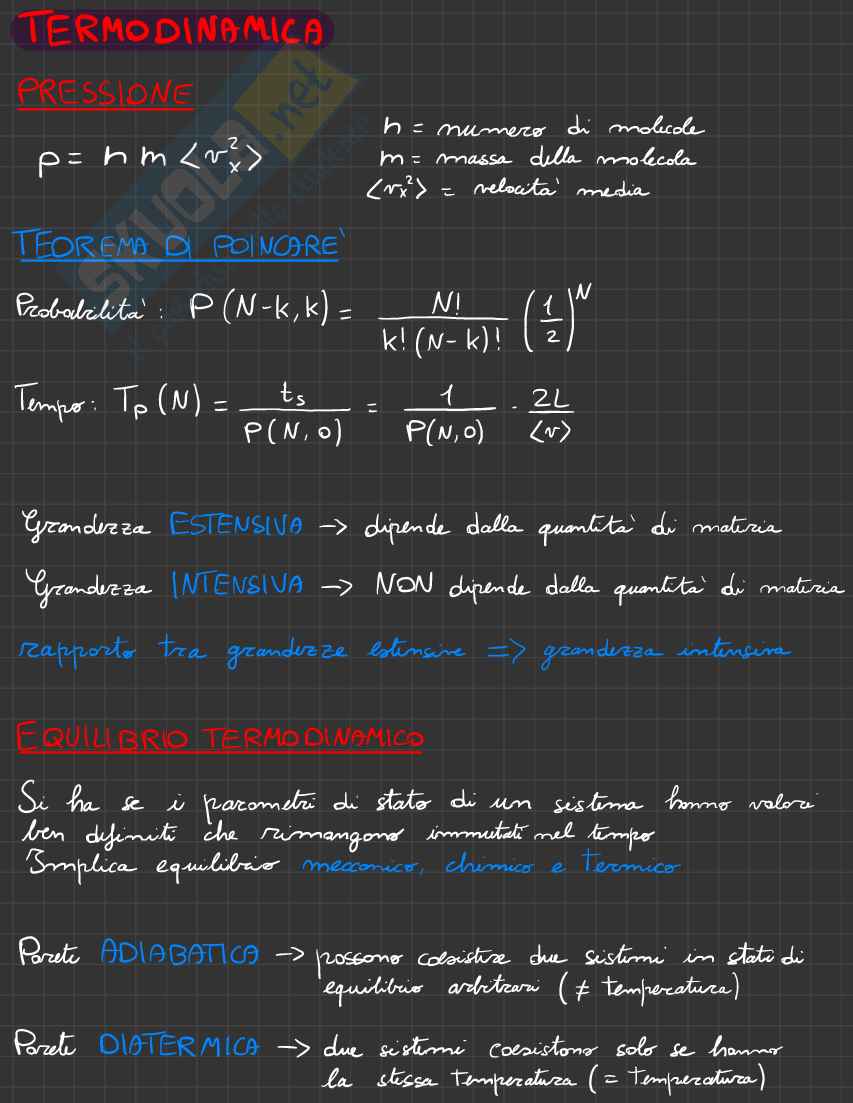 TERMODINAMICA
PRESSIONE
p = n m <v_x^2>
n = numero di molecole
m = massa della molecola
<v_x^2> = velocità media
TEOREMA DI POINCARE'
Probabilità: P(N-k, k) = N! / k!(N-k)! (1/2)^N
Tempo: T_p(N) = t_s / P(N, 0) = 1 / P(N, 0) · 2L / <v>
Grandezza ESTENSIVA -> dipende dalla quantità di materia
Grandezza INTENSIVA -> NON dipende dalla quantità di materia
rapporto tra grandezze estensive => grandezza intensiva
EQUILIBRIO TERMODINAMICO
Si ha se i parametri di stato di un sistema hanno valori
ben definiti che rimangono immutati nel tempo
Implica equilibrio meccanico, chimico e termico
Parete ADIABATICA -> possono coesistere due sistemi in stati di
equilibrio arbitrari (≠ temperatura)
Parete DIATERMICA -> due sistemi coesistono solo se hanno
la stessa temperatura (= temperatura)
SKUOLA.net